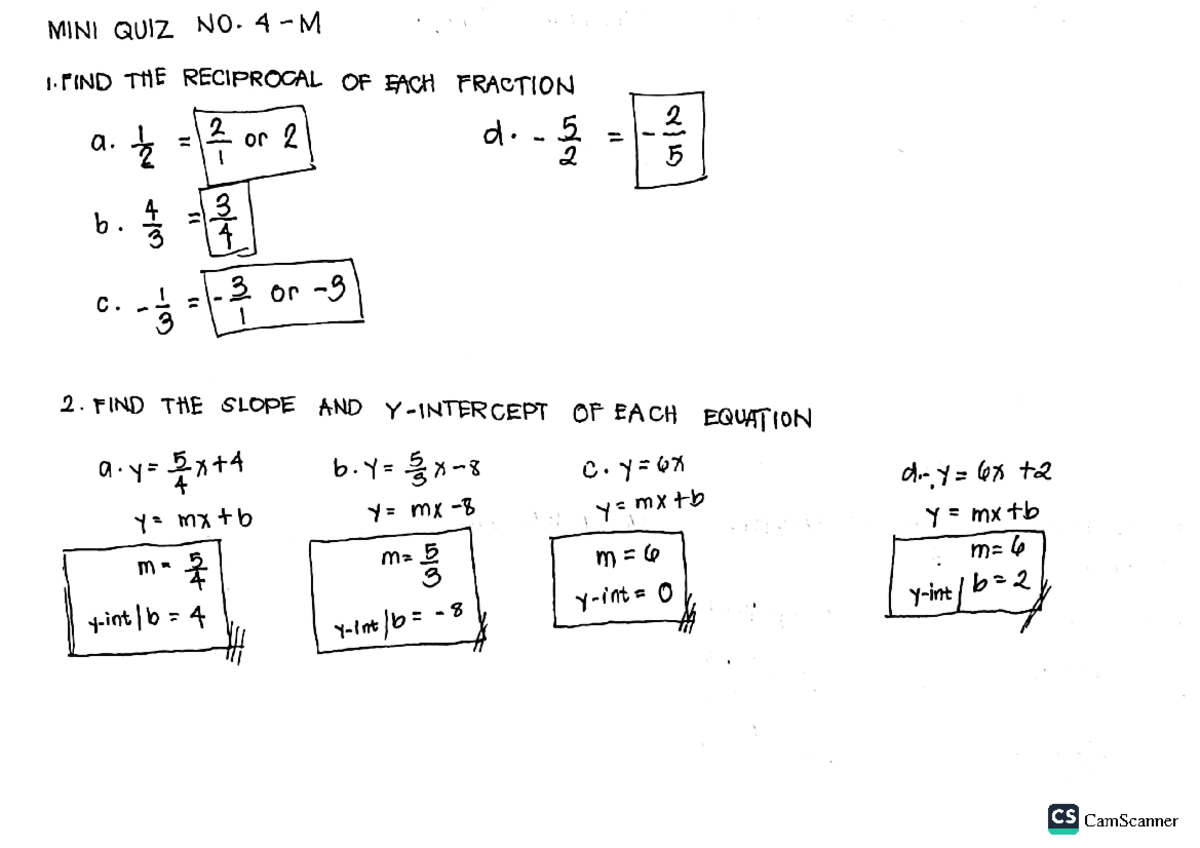 MINI QUIZ NO. 4 - M
1. FIND THE RECIPROCAL OF EACH FRACTION
a. 1/2 = 2/1 or 2
d. - 5/2 = - 2/5
b. 4/3 = 3/4
c. - 1/3 = - 3/1 or -3
2. FIND THE SLOPE AND Y-INTERCEPT OF EACH EQUATION
a. y = 5/4 x + 4
y = mx + b
m = 5/4
y-int | b = 4
b. y = 5/3 x - 8
y = mx - 8
m = 5/3
y-int | b = - 8
c. y = 6x
y = mx + b
m = 6
y-int = 0
d. y = 6x + 2
y = mx + b
m = 6
y-int | b = 2
CS CamScanner